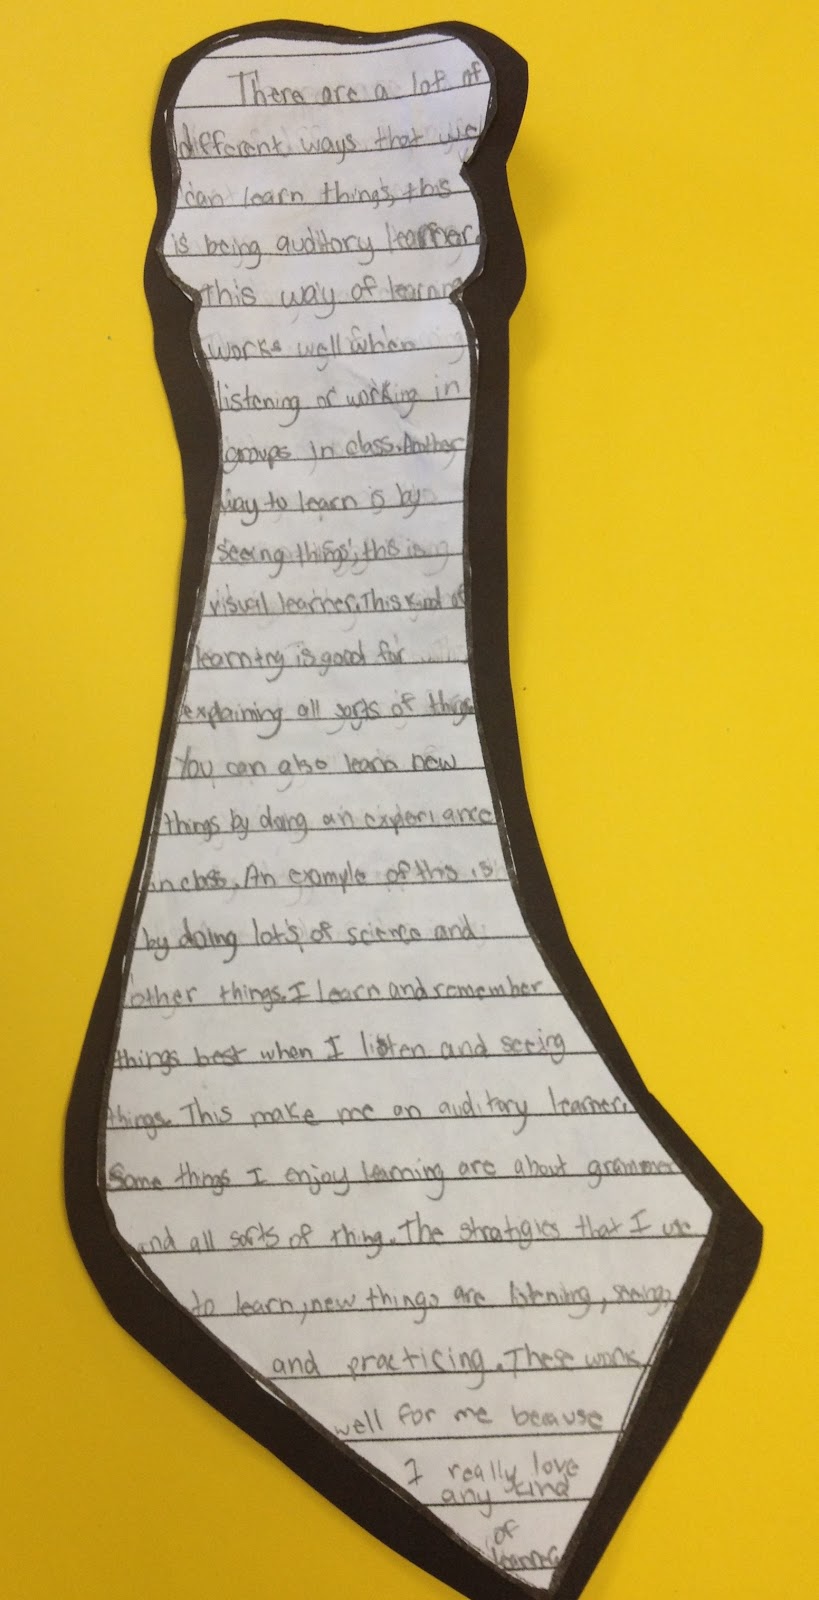 There are a lot of
different ways that we
can learn things, this
is being auditory learner.
this way of learning
works well when
listening or working in
groups in class. Another
way to learn is by
seeing things, this is
visuil learner. This kind of
learning is good for
explaining all sorts of things
You can also learn new
things by doing an experiance
in class. An example of this is
by doing lot's of science and
other things. I learn and remember
things best when I listen and seeing
things. This make me an auditory learner.
Some things I enjoy learning are about grammer
and all sorts of thing. The stratigies that I use
to learn, new things are listening, seeing,
and practicing. These work
well for me because
I really love
any kind
of
learning